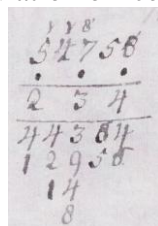 8
5 4 7 5 6
. . .
2 3 4
4 4 3 8 4
1 2 9 5 6
1 4
8